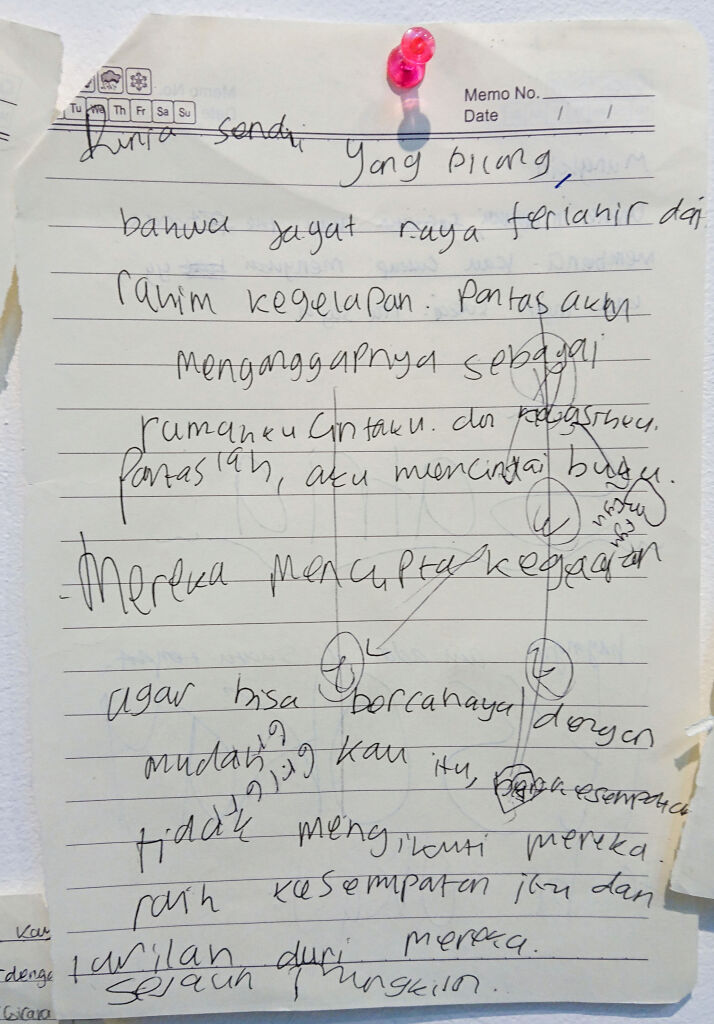 Memo No.
Date / /
Tu We Th Fr Sa Su
sendri yang bilang,
bahwa jagat raya terlahir dari
rahim kegelapan. Pantas aku
menganggapnya sebagai
rumahku cintaku. dan
Pantaslah, aku mencintai buku.
Mereka Mencipta kegelapan
agar bisa bercahaya dengan
mudah kau itu,
tidak mengikuti mereka.
raih kesempatan itu dan
larilah duri mereka.
sejauh mungkin.
Kau
denga